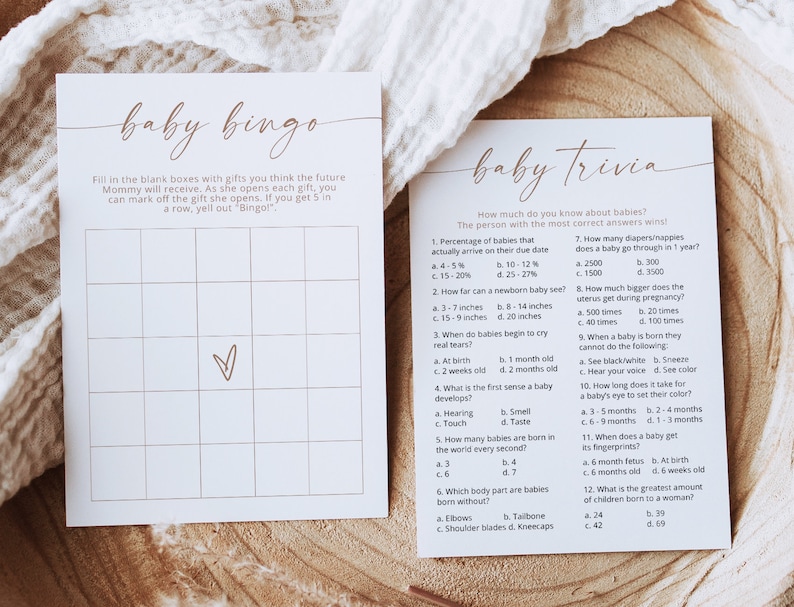 baby bingo
Fill in the blank boxes with gifts you think the future
Mommy will receive. As she opens each gift, you
can mark off the gift she opens. If you get 5 in
a row, yell out "Bingo!".
baby trivia
How much do you know about babies?
The person with the most correct answers wins!
1. Percentage of babies that
actually arrive on their due date
a. 4 - 5 % b. 10 - 12 %
c. 15 - 20% d. 25 - 27%
2. How far can a newborn baby see?
a. 3 - 7 inches b. 8 - 14 inches
c. 15 - 9 inches d. 20 inches
3. When do babies begin to cry
real tears?
a. At birth b. 1 month old
c. 2 weeks old d. 2 months old
4. What is the first sense a baby
develops?
a. Hearing b. Smell
c. Touch d. Taste
5. How many babies are born in
the world every second?
a. 3 b. 4
c. 6 d. 7
6. Which body part are babies
born without?
a. Elbows b. Tailbone
c. Shoulder blades d. Kneecaps
7. How many diapers/nappies
does a baby go through in 1 year?
a. 2500 b. 300
c. 1500 d. 3500
8. How much bigger does the
uterus get during pregnancy?
a. 500 times b. 20 times
c. 40 times d. 100 times
9. When a baby is born they
cannot do the following:
a. See black/white b. Sneeze
c. Hear your voice d. See color
10. How long does it take for
a baby's eye to set their color?
a. 3 - 5 months b. 2 - 4 months
c. 6 - 9 months d. 1 - 3 months
11. When does a baby get
its fingerprints?
a. 6 month fetus b. At birth
c. 6 months old d. 6 weeks old
12. What is the greatest amount
of children born to a woman?
a. 24 b. 39
c. 42 d. 69